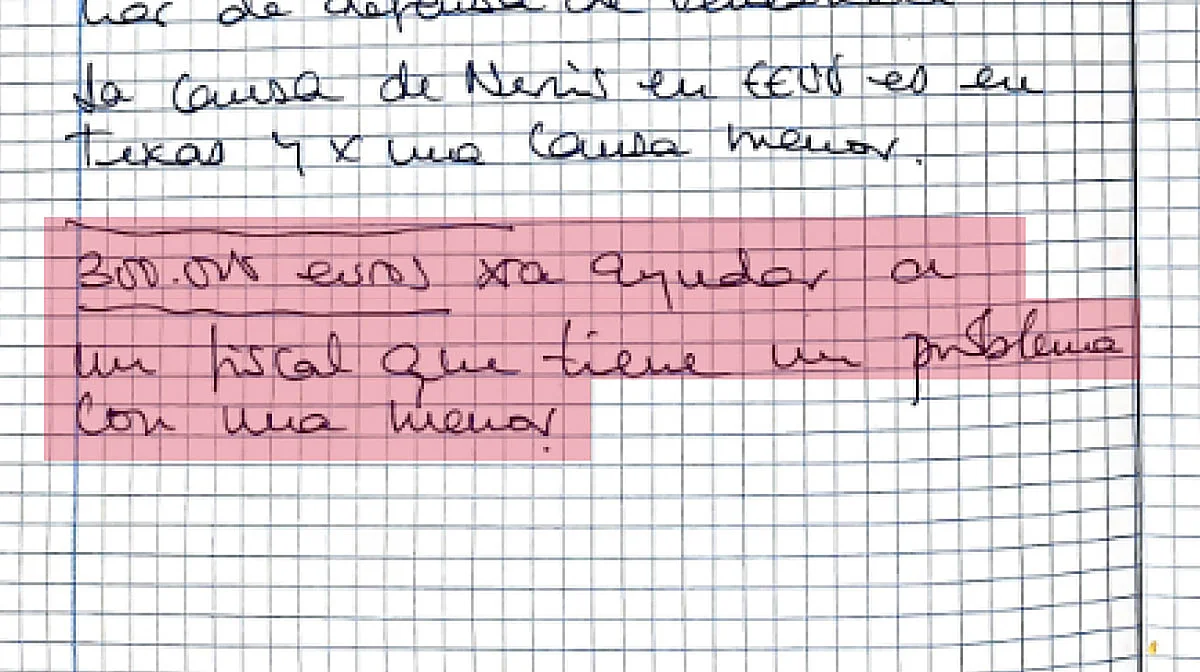 de defensa de
la causa de Nervis en EEUU es en
Texas y x una causa menor.
300.000 euros xra ayudar a
un fiscal que tiene un problema
con una menor.